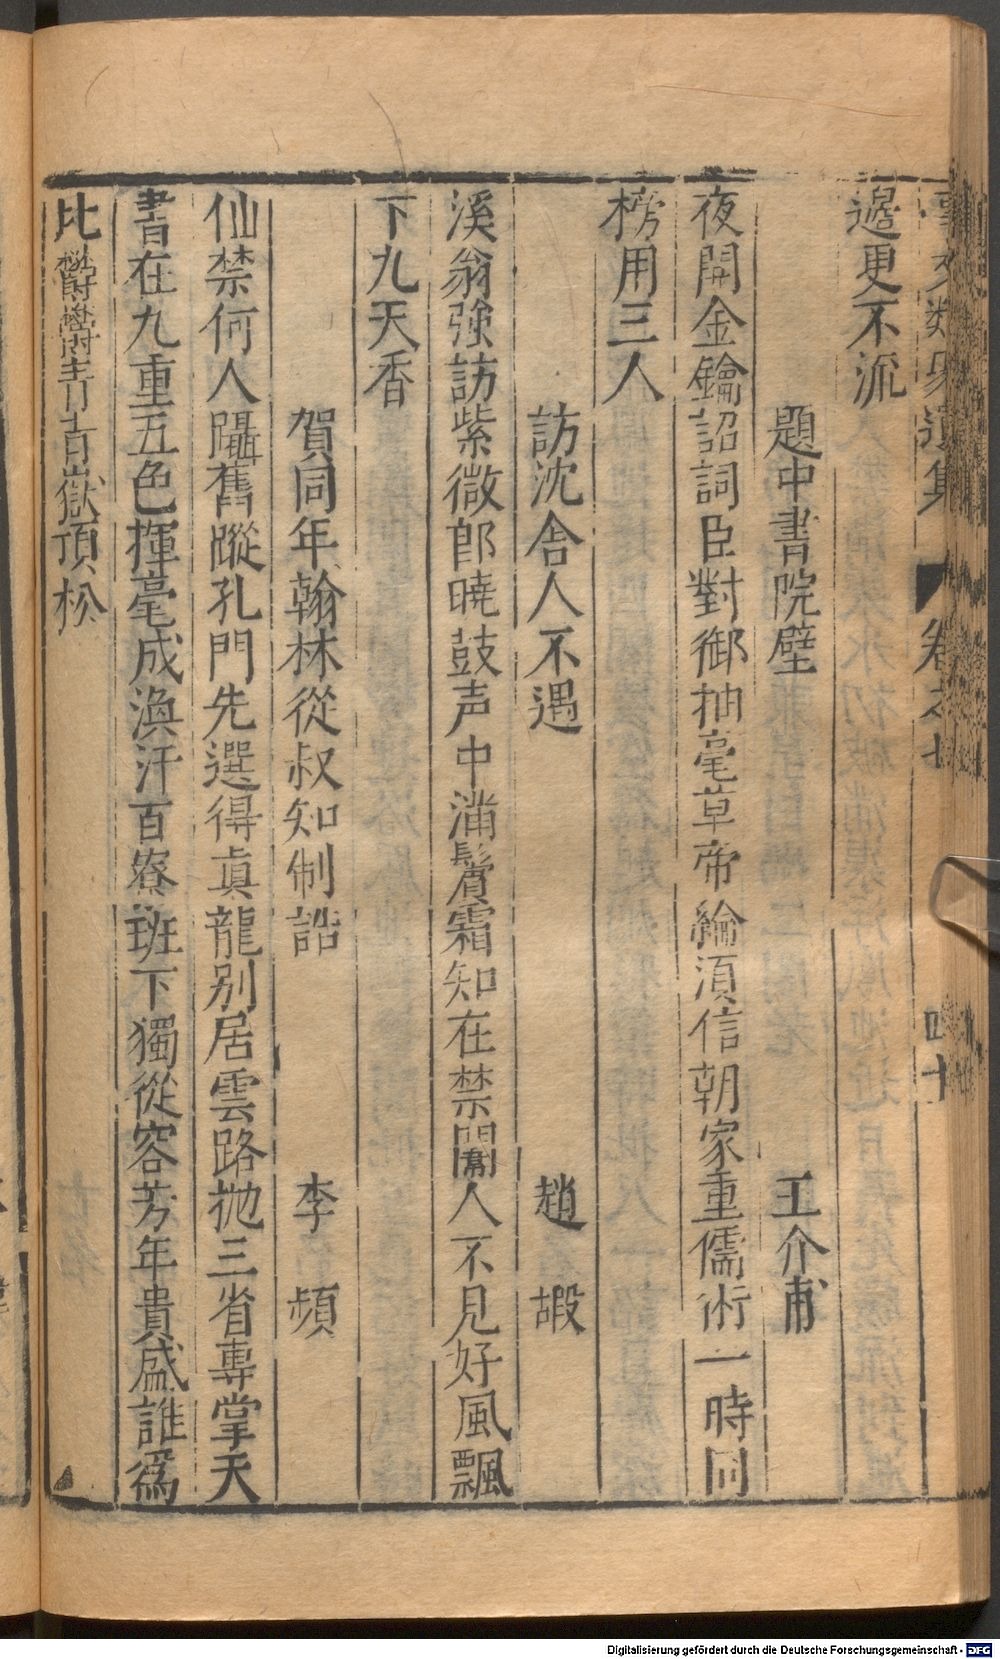 事文類聚遺集 卷之七 四十
邊更不流
題中書院壁 王介甫
夜開金鑰詔詞臣對御抽毫草帝綸湏信朝家重儒術一時同
榜用三人
訪沈舍人不遇 趙 嘏
溪翁強訪紫微郎曉鼓声中滿鬢霜知在禁闈人不見好風飄
下九天香
賀同年翰林從叔知制誥 李 頻
仙禁何人躡舊蹤孔門先選得眞龍别居雲路抛三省專掌天
書在九重五色揮毫成渙汗百寮班下獨從容芳年貴盛誰爲
比鬱鬱青青嶽頂松
Digitalisierung gefördert durch die Deutsche Forschungsgemeinschaft - DFG